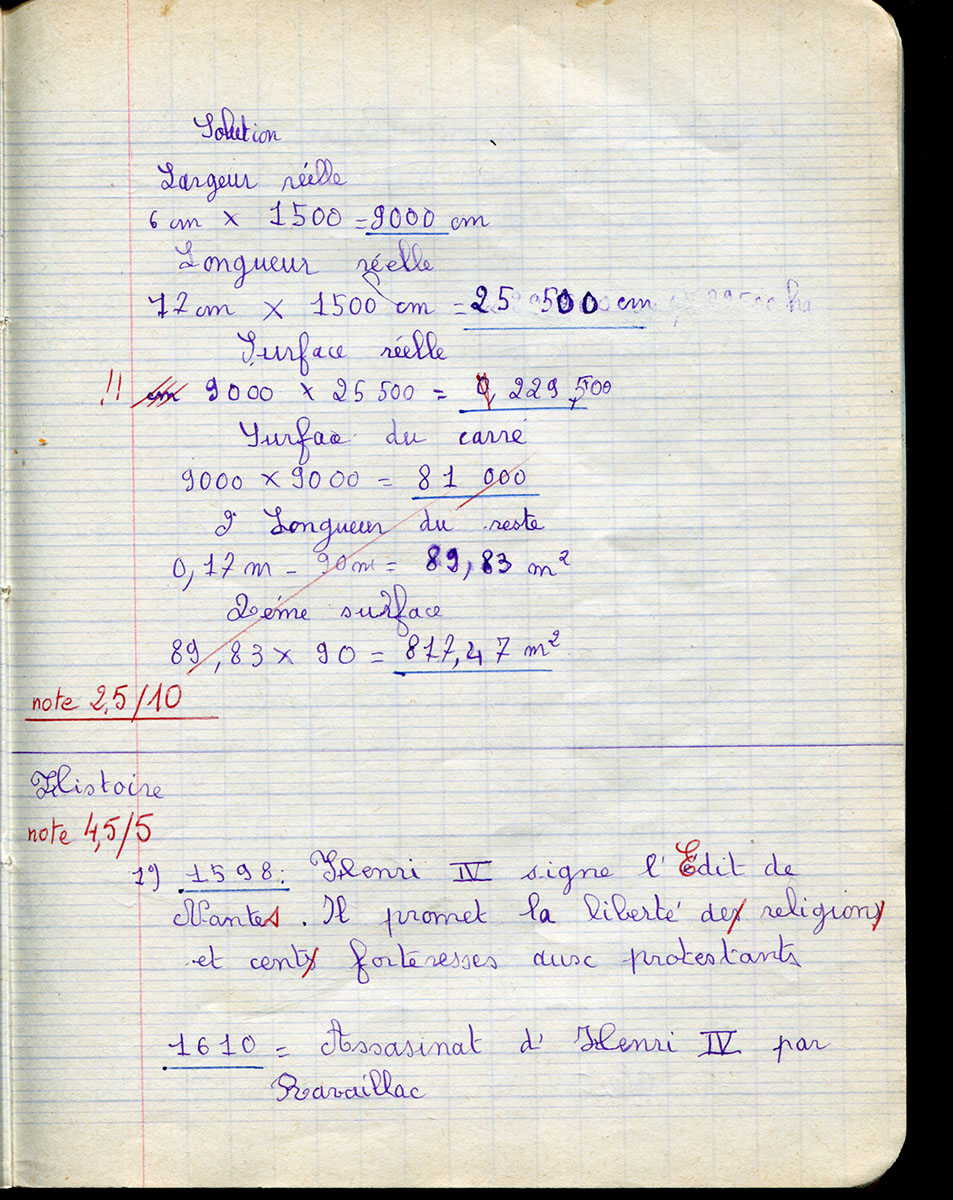 Solution
Largeur réelle
6 cm × 1500 = 9000 cm
Longueur réelle
17 cm × 1500 cm = 25 500 cm
Surface réelle
!! cm 9000 × 25 500 = 0, 229,500
Surface du carré
9000 × 9000 = 81 000
Longueur du reste
0,17 m - 90 m = 89,83 m²
2eme surface
89,83 × 90 = 817,47 m²
note 2,5/10
Histoire
note 4,5/5
1) 1598: Henri IV signe l'Edit de
Nantes. Il promet la liberté des religions
et cents forteresses aux protestants
1610 = Assasinat d'Henri IV par
Ravaillac